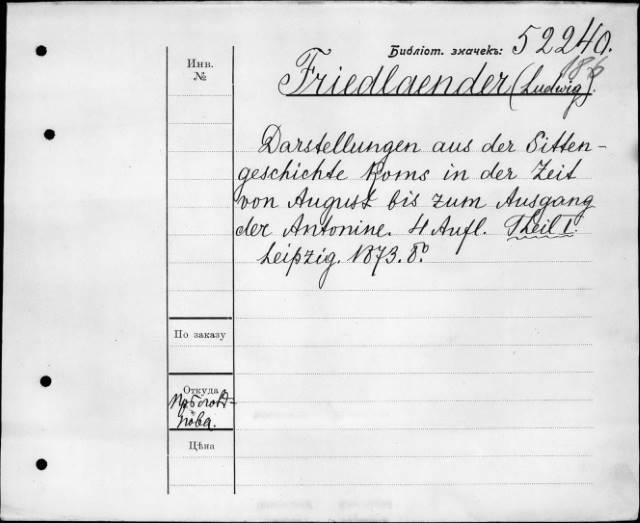 Библіот. значекъ: 52240.
186
Инв.
№
Friedlaender (Ludwig).
Darstellungen aus der Sitten-
geschichte Roms in der Zeit
von August bis zum Ausgang
der Antonine. 4 Aufl. Theil I.
Leipzig. 1873. 8°.
По заказу
Откуда
Цѣна